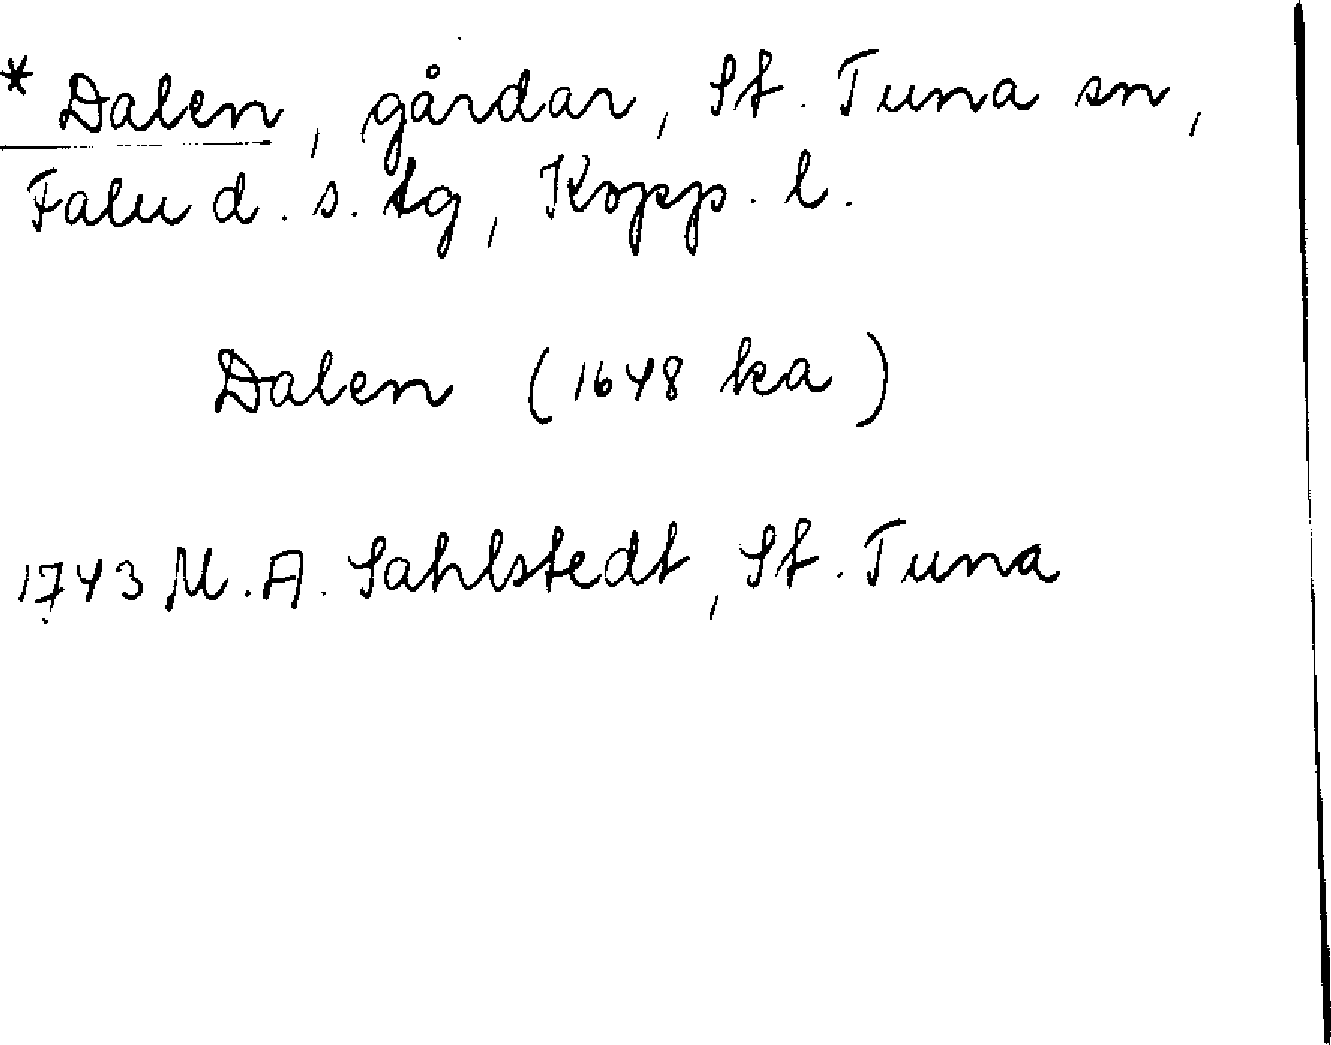 * Dalen, gårdar, St. Tuna sn,
Falu d. s. tg, Kopp. l.
Dalen (1648 ka)
1743 M. A. Sahlstedt, St. Tuna